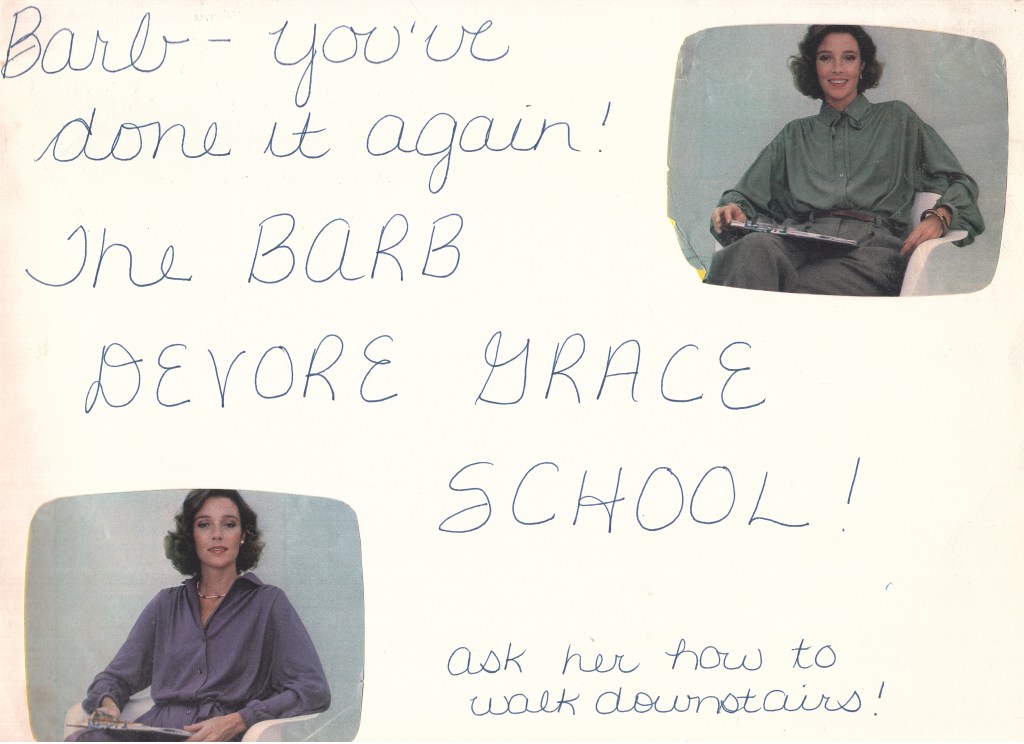 Barb - you've
done it again!
The BARB
DEVORE GRACE
SCHOOL!
ask her how to
walk downstairs!